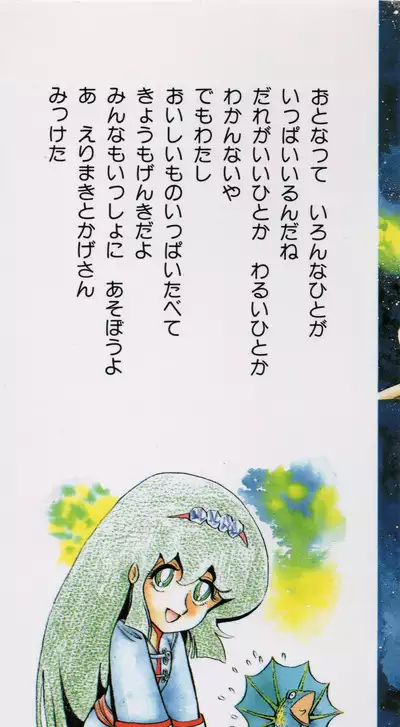 おとなって　いろんなひとが
いっぱいいるんだね
だれがいいひとか　わるいひとか
わかんないや
でもわたし
おいしいものいっぱいたべて
きょうもげんきだよ
みんなもいっしょに　あそぼうよ
あ　えりまきとかげさん
みっけた